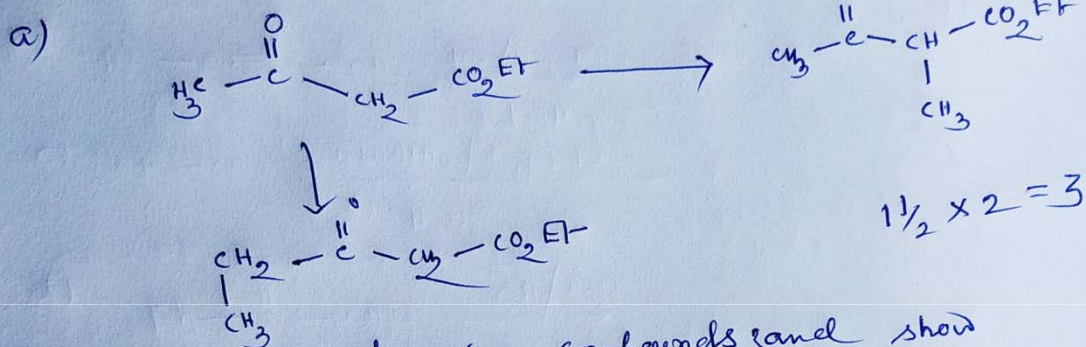 a)
O
||
H3C — C — CH2 — CO2Et ⟶ CH3 — C — CH — CO2Et
||
CH3
↓
||
CH2 — C — CH2 — CO2Et
|
CH3
1 1/2 × 2 = 3
and show